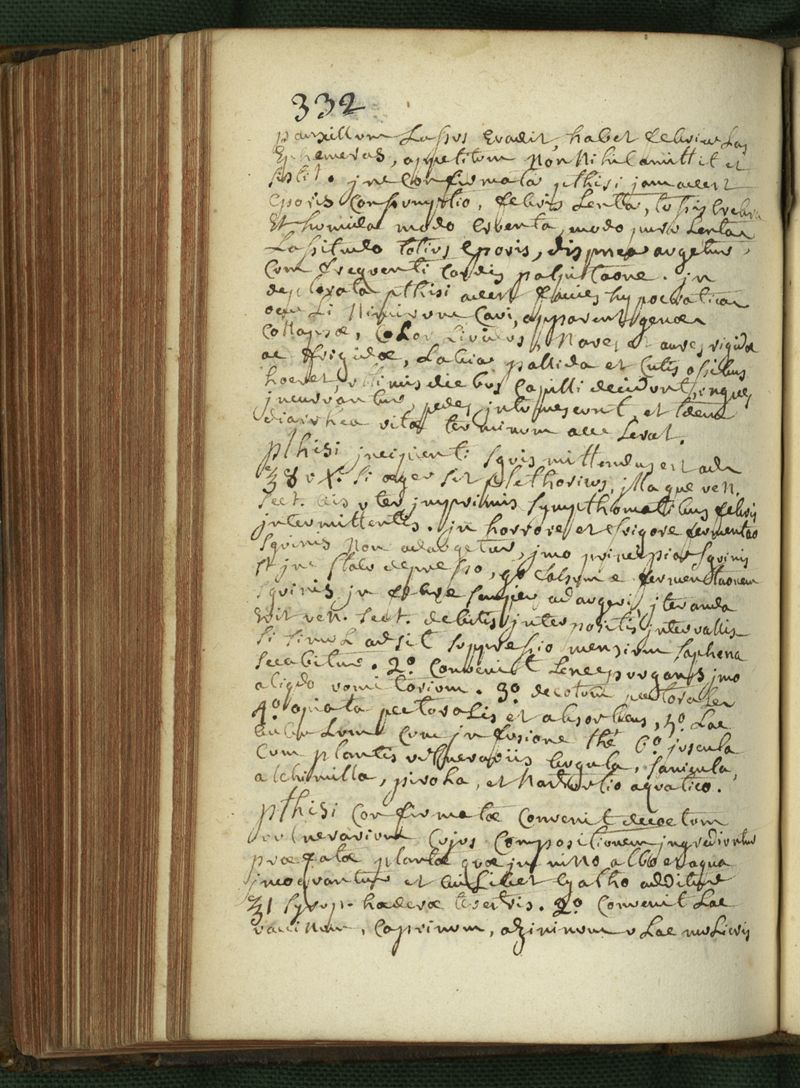 332
pauxillum Lassus Evadit, habet febriculas
Ephemeras, appetitum non Nihil amittit et
sitit. jn Confirmata pthisi jam adest
Cporis Consumptio, febris Lenta, tussis crebra
Et humida modo cruenta, modo purulenta
Lassitudo totius Cporis, dispnea augetur,
Com frequenti Cordis palpitaone. jn
deplorata pthisi adest facies hypocratica
oculi Nimirum Cavi, apparent genae
Collapsae, Color Lividus, Nares et aures rigidae
ac frigidae, Labia pallida et Cutis ossibus
haeret, ultimis diebus Capilli decidunt, ungues
jncurvantur, pedes jntumescunt, et tdem
diarrhea vitae terminum accelerat.
pthisi jncipienti sguis mittendus est ad
si aeger sit plethoricus, jllaque ven.
sect. bis uter jmprimis sympthomatibus febris
jntermittentis. jn horrore et frigore fermentao
sguinis Non adaugetur, jmo principia sguinis
st jn statu depresso, Calorum e fermentaonem
sguinis jn febre semper adaugeri, jteranda
Erit ven. sect. debitis jnterpositis jntervallis
si simul adsit suppressio mensium saphena
secabitur. 2.o Convenit Lene purgans jmo
aliqdo vomitorium. 3.o decotum pectorale
4.o opiata pectoralis et absorbens, 5.o Lac
Com jnfusione thé 6.o juscula
Com plantis vulnerariis bugula, sanicula,
alchimilla, pirola, et Nasturtio aquatico.
pthisi Confirmatae Convenit decoctum
vulnerarium Cujus Compositionem jngrediuntur
praefatae plantae quae jn vino albo et aqua
jncoquantur et cuiLibet Cyatho additur
syrup. haederae terrtris. 2.o Convenit Lac
vaccinum, Caprinum, azininum v Lac muLieris